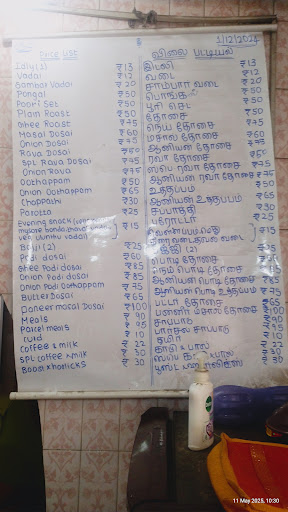 1/12/2024
Price List விலை பட்டியல்
Idly (1) ₹13 இட்லி ₹13
Vadai ₹12 வடை ₹12
Sambar Vadai ₹20 சாம்பார் வடை ₹20
Pongal ₹50 பொங்கல் ₹50
Poori Set ₹50 பூரி செட் ₹50
Plain Roast ₹50 தோசை ₹50
Ghee Roast ₹75 நெய் தோசை ₹75
Masal Dosai ₹60 மசால் தோசை ₹60
Onion Dosai ₹75 ஆனியன் தோசை ₹75
Rava Dosai ₹60 ரவா தோசை
Spl Rava Dosai ₹75 ஸ்பெ ரவா தோசை ₹75
Onion Rava ₹75 ஆனியன் ரவா தோசை ₹75
Oothappam ₹50 ஊத்தப்பம் ₹50
Onion Oothappam ₹65 ஆனியன் ஊத்தப்பம் ₹65
Chappathi ₹30 சப்பாத்தி ₹30
Parotta ₹25 பரோட்டா ₹25
evening snack
mysore bonda
veg
Bajji (2) ₹25 பஜ்ஜி (2) ₹25
Podi dosai ₹60 பொடி தோசை ₹60
Ghee Podi dosai ₹85 நெய் பொடி தோசை ₹85
Onion Podi dosai ₹85 ஆனியன் பொடி தோசை ₹85
Onion Podi Oothappam ₹75 ஆனியன் பொடி ஊத்தப்பம் ₹75
Butter Dosai ₹65 பட்டர் தோசை ₹65
Paneer masal Dosai ₹100 பன்னீர் மசால் தோசை ₹100
Meals ₹90 சாப்பாடு ₹90
Parcel meals ₹95 பார்சல் சாப்பாடு ₹95
Curd ₹10 தயிர் ₹10
Coffee & milk ₹22 காபி & பால் ₹22
SPL Coffee & milk ₹30 ஸ்பெ ₹30
Boost, Horlicks ₹30 பூஸ்ட், ஹார்லிக்ஸ் ₹30
Dettol
11 May 2025, 10:30